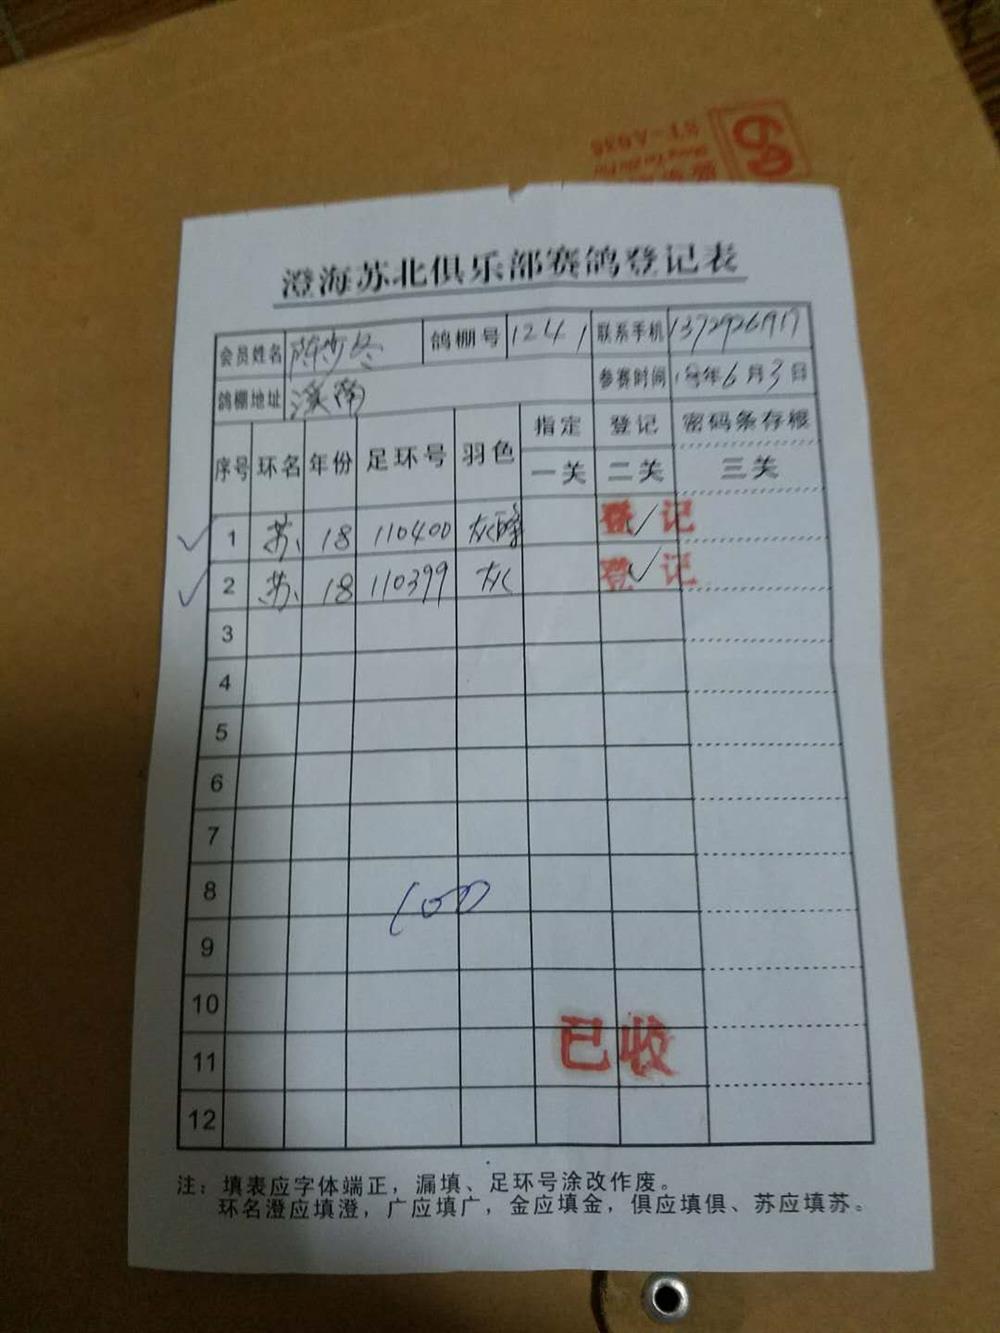 ST-A036
澄海苏北俱乐部赛鸽登记表
会员姓名 陈少冬 鸽棚号 1241 联系手机
鸽棚地址 溪南 参赛时间 18年6月3日
序号 环名 年份 足环号 羽色 指定 登记 密码条存根
一关 二关 三关
1 苏 18 110400 灰 登记
2 苏 18 110399 灰 登记
3
4
5
6
7
8 100
9
10
已收
11
12
注：填表应字体端正，漏填、足环号涂改作废。
环名澄应填澄，广应填广，金应填金，俱应填俱、苏应填苏。